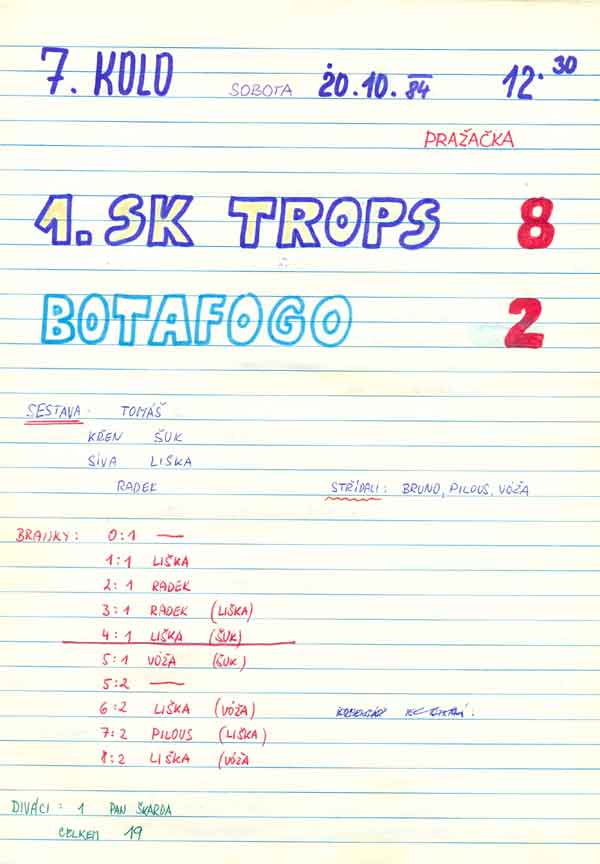 7. KOLO SOBOTA 20.10.84 12.30
PRAŽAČKA
1. SK TROPS 8
BOTAFOGO 2
SESTAVA: TOMÁŠ
KŘEN ŠUK
SÍVA LIŠKA
RADEK STŘÍDALI: BRUNO, PILOUS, VÓŽA
BRANKY: 0:1 —
1:1 LIŠKA
2:1 RADEK
3:1 RADEK (LIŠKA)
4:1 LIŠKA (ŠUK)
5:1 VÓŽA (ŠUK)
5:2 —
6:2 LIŠKA (VÓŽA)
7:2 PILOUS (LIŠKA)
8:2 LIŠKA (VÓŽA
DIVÁCI: 1 PAN ŠKARDA
CELKEM 19